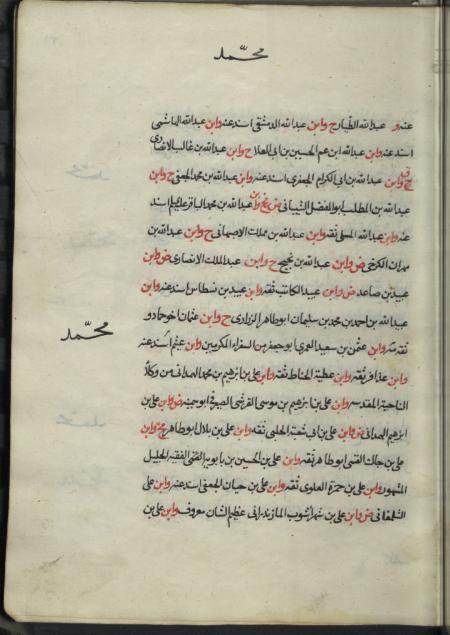 محمّد
عنه و عبدالله الطيار ح وابن عبدالله الدمشقي اسند عنه وابن عبدالله الهاشمي
اسند عنه وابن عبدالله ابن عم الحسين بن ابي العلا ح وابن عبدالله بن غالب الانصاري
وابن عبدالله بن ابي الكرام الجعفري اسند عنه وابن عبدالله بن محمد الجعفي ح وابن
عبدالله بن المطلب ابو المفضل الشيباني ض وابن عبدالله بن محمد الباقر عليه السلام اسند
عنه وابن عبدالله المسلي ثقه وابن عبدالله بن مملك الاصبهاني ح وابن عبدالله بن
مهران الكرخي ض وابن عبدالله بن نجيح ح وابن عبدالملك الانصاري ض وابن
عبيد بن صاعد ض وابن عبيد الكاتب ثقه وابن عبيد بن نسطاس اسند عنه وابن
عبيدالله بن احمد بن محمد بن سليمان ابوطاهر الزراري ح وابن عثمان اخو حماد و
ثقه وابن عثمن بن سعيد العمري ابوجعفر من السفراء المكرمين وابن عثيم اسند عنه
وابن عذافر ثقه وابن عطية الحناط ثقه وابن علي بن ابرهيم بن محمد الهمداني من وكلاء
الناحية المقدسه وابن علي بن ابرهيم بن موسى القرشي الصيرفي ابو سمينه ض وابن علي بن
محمّد
ابرهيم الهمداني ض وابن علي بن ابي شعبة الحلبي ثقه وابن علي بن بلال ابوطاهر وابن
علي بن جاك القمي ابوطاهر ثقه وابن علي بن الحسين بن بابويه القمي الفقيه الجليل
المشهور وابن علي بن حمزة العلوي ثقه وابن علي بن حيان الجعفي اسند عنه وابن علي
الشلمغاني ض وابن علي بن شهراشوب المازندراني عظيم الشان معروف وابن علي بن